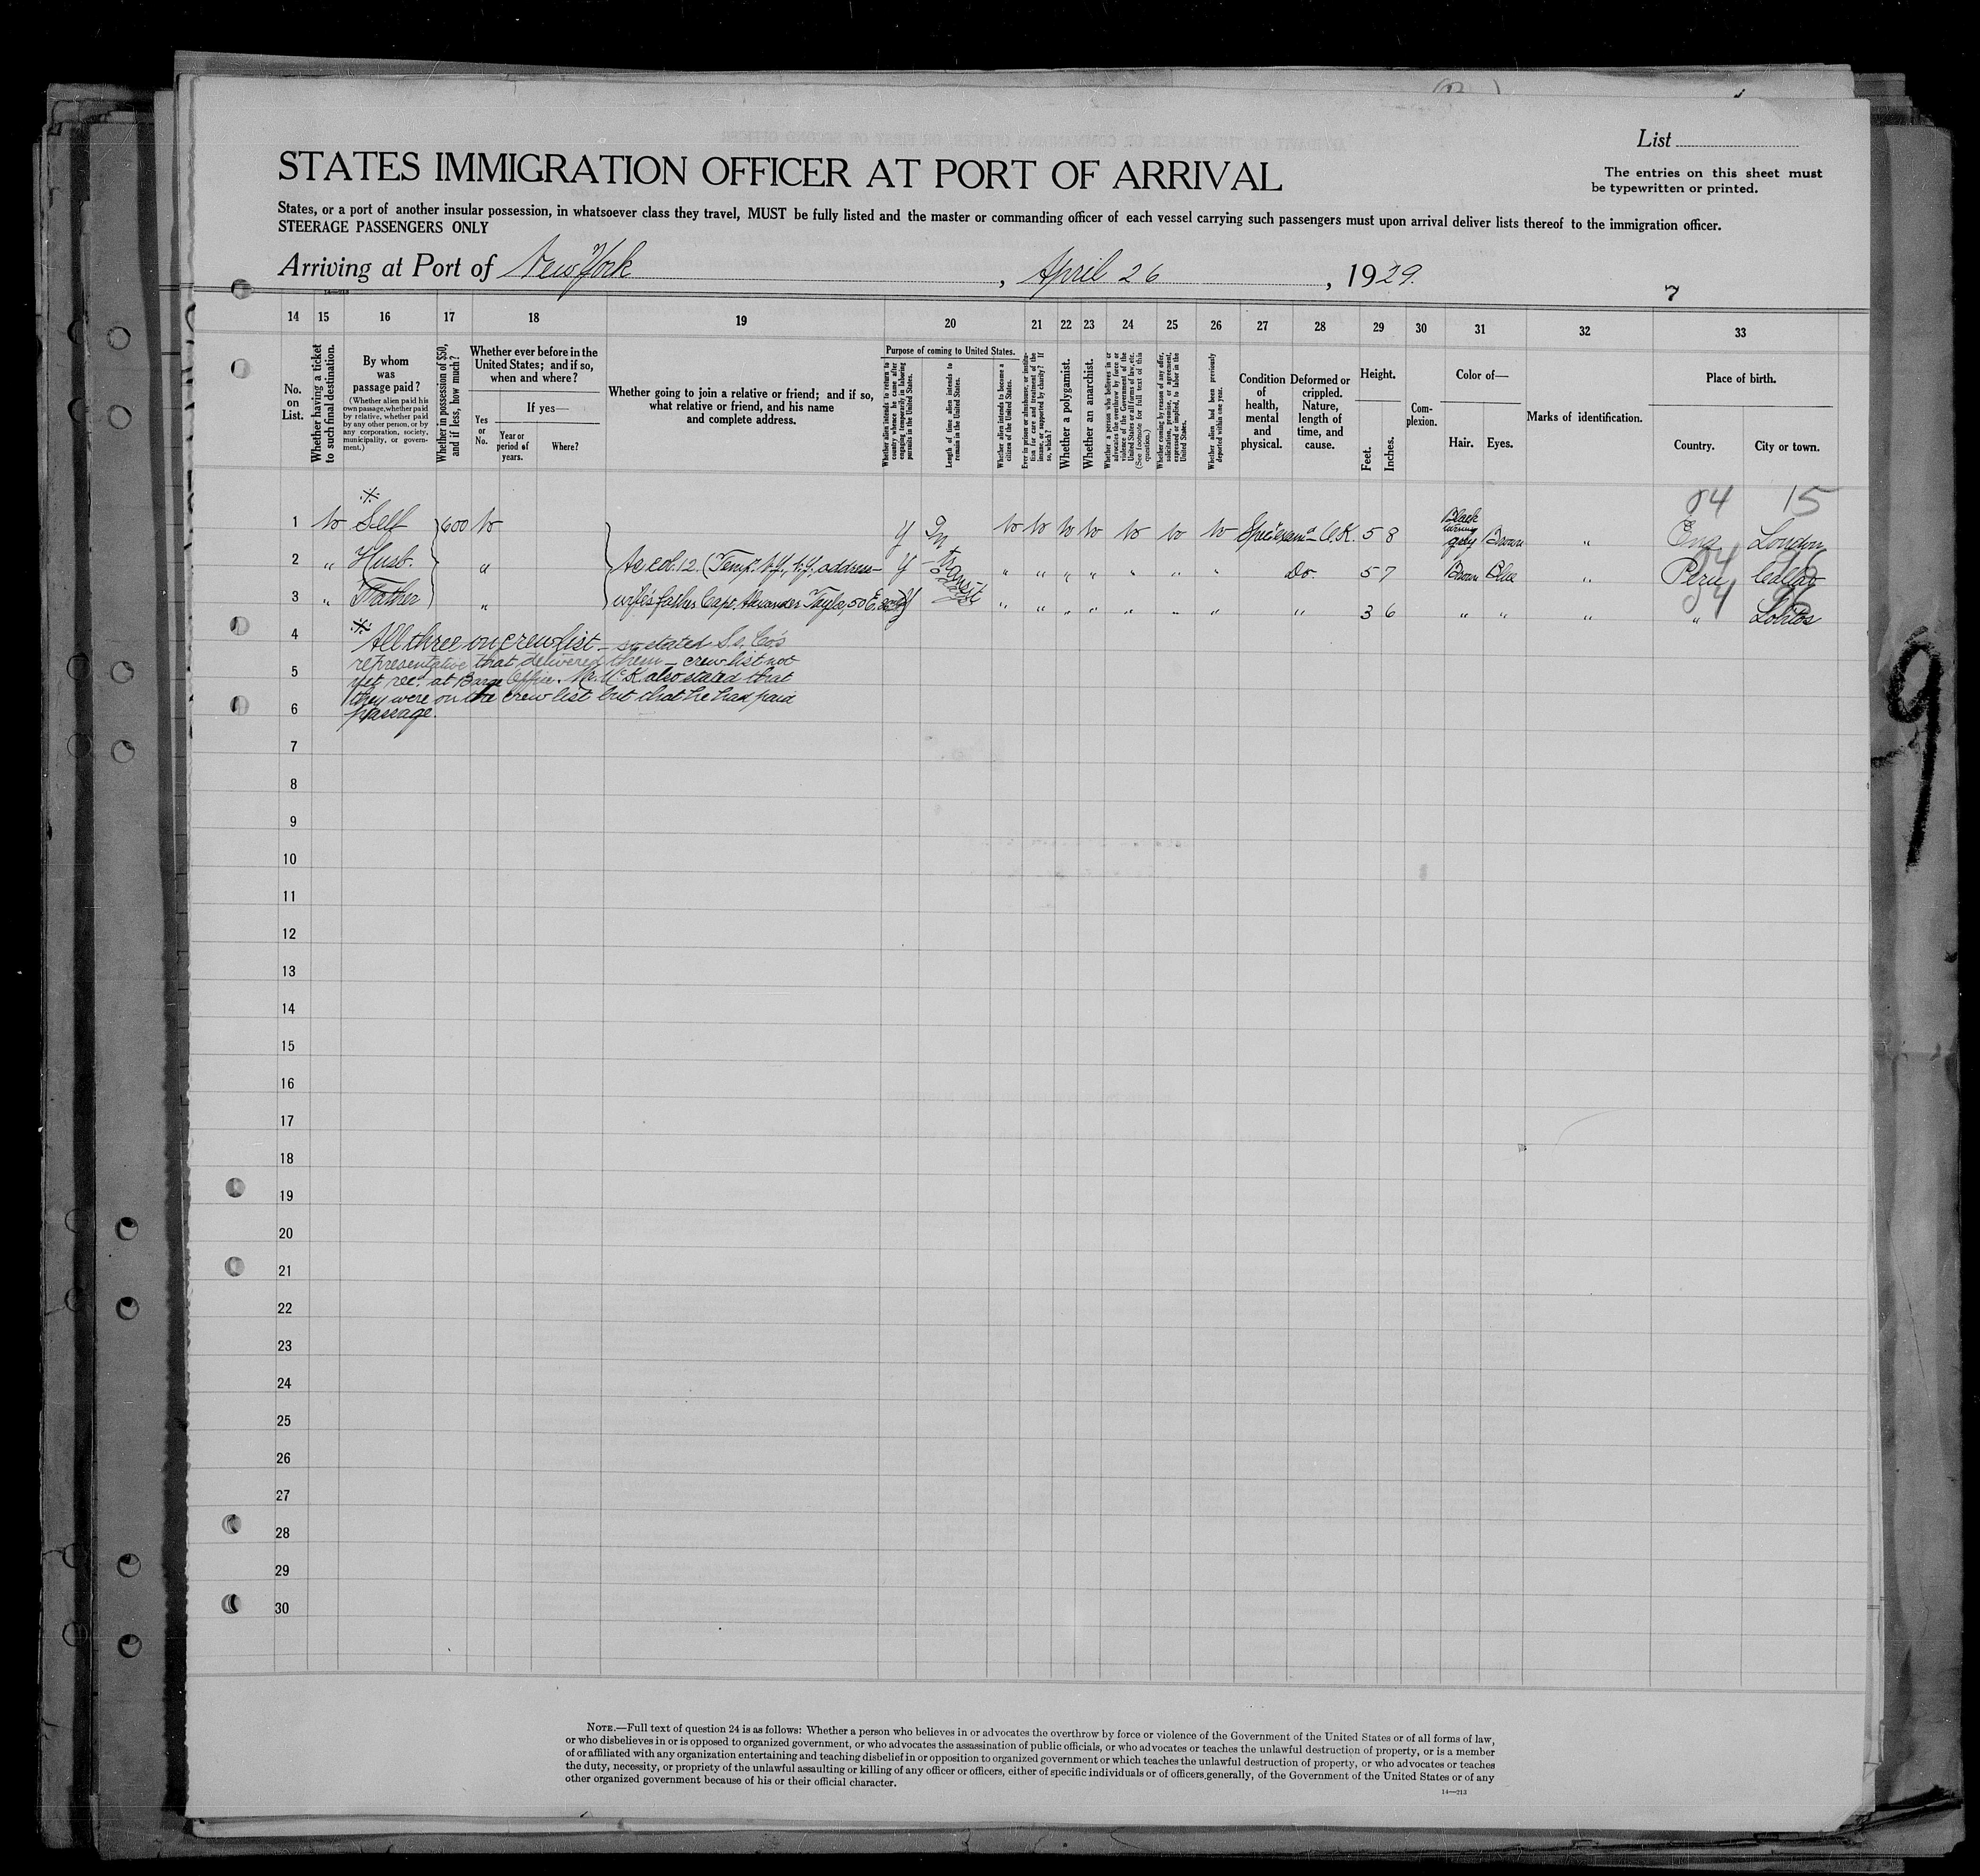 List
STATES IMMIGRATION OFFICER AT PORT OF ARRIVAL
The entries on this sheet must
be typewritten or printed.
States, or a port of another insular possession, in whatsoever class they travel, MUST be fully listed and the master or commanding officer of each vessel carrying such passengers must upon arrival deliver lists thereof to the immigration officer.
STEERAGE PASSENGERS ONLY
Arriving at Port of New York, April 26, 1929.
7
14 15 16 17 18 19 20 21 22 23 24 25 26 27 28 29 30 31 32 33
No. on List.
Whether having a ticket to such final destination.
By whom was passage paid?
(Whether alien paid his own passage, whether paid by relative, whether paid by any other person, or by any corporation, society, municipality, or government.)
Whether in possession of $50, and if less, how much?
Whether ever before in the United States; and if so, when and where?
Yes or No.
If yes—
Year or period of years.
Where?
Whether going to join a relative or friend; and if so, what relative or friend, and his name and complete address.
Purpose of coming to United States.
Whether alien intends to return to country whence he came after engaging temporarily in laboring pursuits in the United States.
Length of time alien intends to remain in the United States.
Whether alien intends to become a citizen of the United States.
Ever in prison or almshouse, or institution for care and treatment of the insane, or supported by charity? If so, which?
Whether a polygamist.
Whether an anarchist.
Whether a person who believes in or advocates the overthrow by force or violence of the Government of the United States or all forms of law, etc. (See footnote for full text of this question.)
Whether coming by reason of any offer, solicitation, promise, or agreement, expressed or implied, to labor in the United States.
Whether alien had been previously deported within one year.
Condition of health, mental and physical.
Deformed or crippled. Nature, length of time, and cause.
Height.
Feet.
Inches.
Complexion.
Color of—
Hair.
Eyes.
Marks of identification.
Place of birth.
Country.
City or town.
04 15
1 No Self 600 No y In No No No No No No No Spec exam O.K. 5 8 Black turning gray Brown " Eng London
2 " Husb. " As col. 12. (Temp. N.Y., N.Y. address— y transit " " " " " " " Do. 5 7 Brown Blue " Peru Callao
3 " Father " wife's father Capt. Alexander Taylor, 50 E. y " " " " " " " " 3 6 " " " " Lobitos
4 All three on crew list — so stated S.S. Co's
representative that delivered them — crew list not
5 yet rec. at Barge Office. Mr. McK also stated that
they were on the crew list but that he had paid
6 passage.
7
8
9
10
11
12
13
14
15
16
17
18
19
20
21
22
23
24
25
26
27
28
29
30
9
NOTE.—Full text of question 24 is as follows: Whether a person who believes in or advocates the overthrow by force or violence of the Government of the United States or of all forms of law,
or who disbelieves in or is opposed to organized government, or who advocates the assassination of public officials, or who advocates or teaches the unlawful destruction of property, or is a member
of or affiliated with any organization entertaining and teaching disbelief in or opposition to organized government or which teaches the unlawful destruction of property, or who advocates or teaches
the duty, necessity, or propriety of the unlawful assaulting or killing of any officer or officers, either of specific individuals or of officers generally, of the Government of the United States or of any
other organized government because of his or their official character.
14—213